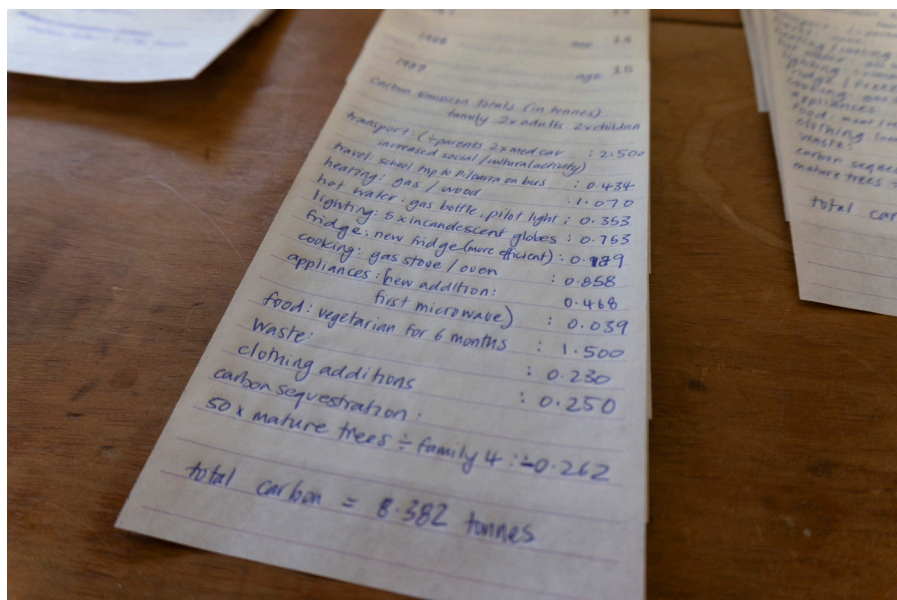 1988 age 14
1989 age 15
Carbon Emission Totals (in tonnes)
family 2x adults 2x children
transport: (÷parents 2x med car : 2.500
increased social/cultural activity)
travel: school trip to Pilbarra on bus : 0.434
heating: gas / wood : 1.070
hot water: gas bottle. pilot light : 0.353
lighting: 5 x incandescent globes : 0.753
fridge: new fridge (more efficient) : 0.189
cooking: gas stove / oven : 0.858
appliances: new addition: 0.468
first microwave) : 0.039
food: vegetarian for 6 months : 1.500
waste: : 0.230
clothing additions : 0.250
carbon sequestration:
50 x mature trees ÷ family 4 : -0.262
total carbon = 8.382 tonnes
fridge / freez
cooking: gas
appliances
food: meat
clothing
waste:
carbon seque
mature trees ÷
total car